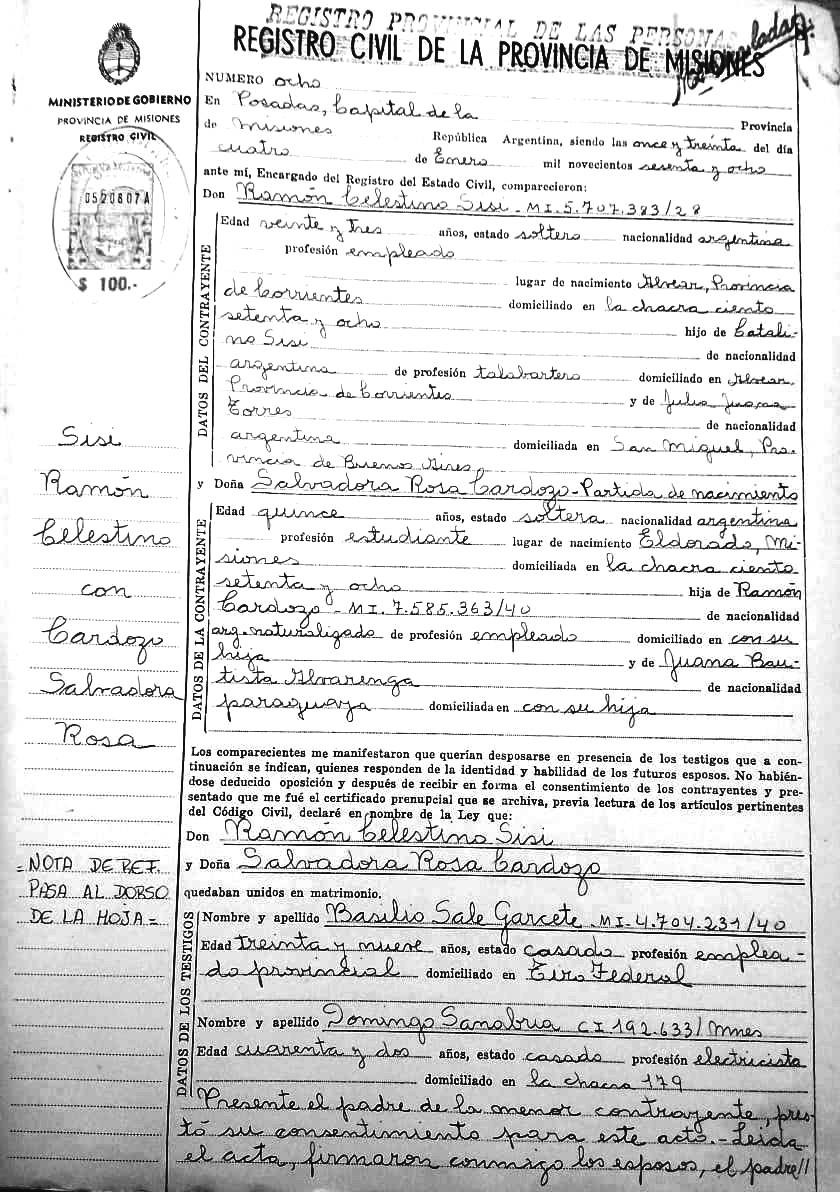 REGISTRO PROVINCIAL DE LAS PERSONAS
REGISTRO CIVIL DE LA PROVINCIA DE MISIONES
MINISTERIO DE GOBIERNO
PROVINCIA DE MISIONES
REGISTRO CIVIL
0520807A
$ 100.-
NUMERO ocho
En Posadas, Capital de la Provincia
de Misiones República Argentina, siendo las once y treinta del día
cuatro de Enero mil novecientos sesenta y ocho
ante mí, Encargado del Registro del Estado Civil, comparecieron:
Don Ramón Celestino Sisi - MI. 5.707.383/28
DATOS DEL CONTRAYENTE
Edad veinte y tres años, estado soltero nacionalidad argentina
profesión empleado
lugar de nacimiento Alvear, Provincia
de Corrientes domiciliado en la chacra ciento
setenta y ocho hijo de Catali-
no Sisi de nacionalidad
argentina de profesión talabartero domiciliado en Alvear,
Provincia de Corrientes y de Julia Juana
Torres de nacionalidad
argentina domiciliada en San Miguel, Pro-
vincia de Buenos Aires,
y Doña Salvadora Rosa Cardozo - Partida de nacimiento
DATOS DE LA CONTRAYENTE
Edad quince años, estado soltera nacionalidad argentina
profesión estudiante lugar de nacimiento Eldorado, Mi-
siones domiciliada en la chacra ciento
setenta y ocho hija de Ramón
Cardozo - MI. 7.585.363/40 de nacionalidad
arg. naturalizado de profesión empleado domiciliado en con su
hija y de Juana Bau-
tista Alvarenga de nacionalidad
paraguaya domiciliada en con su hija
Sisi
Ramón
Celestino
con
Cardozo
Salvadora
Rosa
Los comparecientes me manifestaron que querían desposarse en presencia de los testigos que a con-
tinuación se indican, quienes responden de la identidad y habilidad de los futuros esposos. No habién-
dose deducido oposición y después de recibir en forma el consentimiento de los contrayentes y pre-
sentado que me fué el certificado prenupcial que se archiva, previa lectura de los artículos pertinentes
del Código Civil, declaré en nombre de la Ley que:
Don Ramón Celestino Sisi
y Doña Salvadora Rosa Cardozo
quedaban unidos en matrimonio.
= NOTA DE REF.
PASA AL DORSO
DE LA HOJA =
DATOS DE LOS TESTIGOS
Nombre y apellido Basilio Sale Garcete MI. 4.704.231/40
Edad treinta y nueve años, estado casado profesión emplea-
do provincial domiciliado en Tiro Federal
Nombre y apellido Domingo Sanabria CI 192.633/Mnes
Edad cuarenta y dos años, estado casado profesión electricista
domiciliado en la chacra 179
Presente el padre de la menor contrayente, pres-
tó su consentimiento para este acto.- Leída
el acta, firmaron conmigo los esposos, el padre//